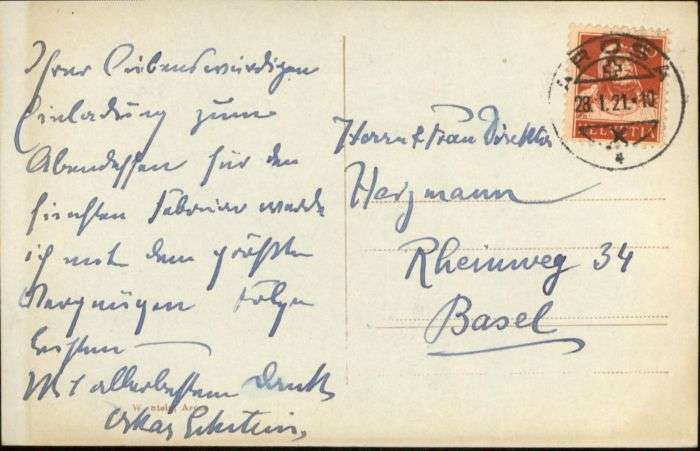 Ihrer liebenswürdigen
Einladung zum
Abendessen für den
fünften Februar werde
ich mit dem größten
Vergnügen Folge
leisten
Mit allerbestem Dank
Oskar Eckstein,
AROSA
28.1.21.-10
HELVETIA
Herrn & Frau Direktor
Herzmann
Rheinweg 34
Basel